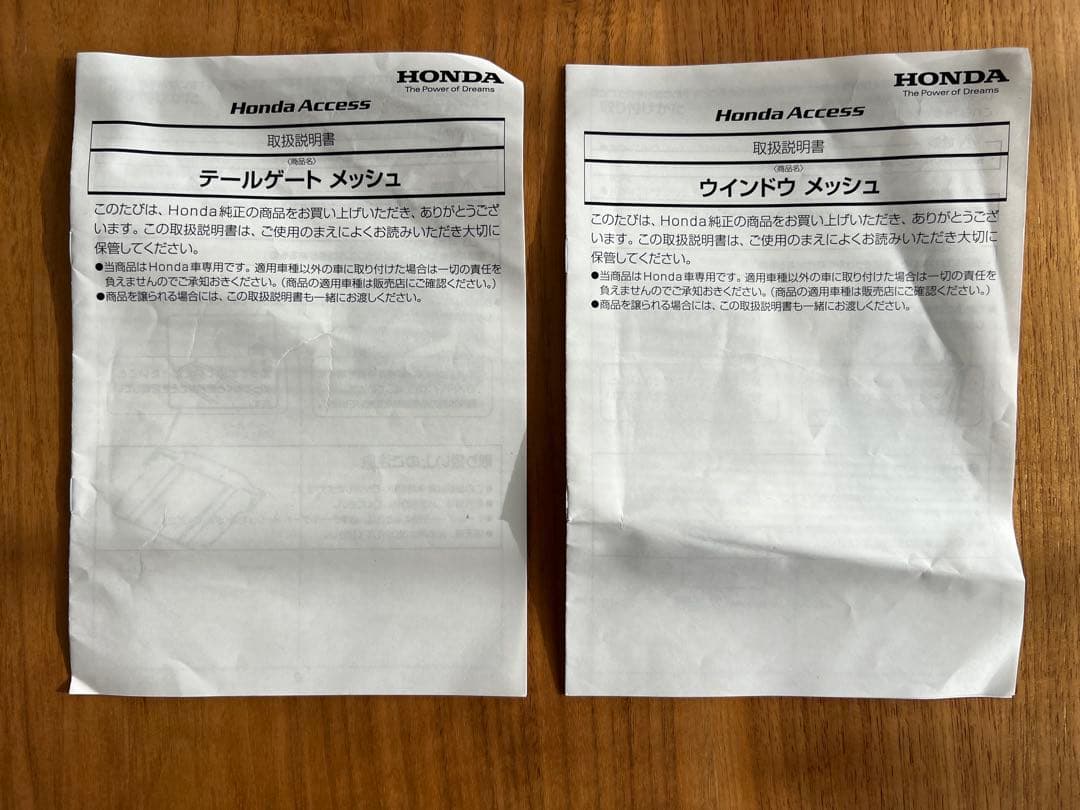 HONDA
The Power of Dreams
Honda Access
取扱説明書
〈商品名〉
テールゲート メッシュ
このたびは、Honda純正の商品をお買い上げいただき、ありがとうござ
います。この取扱説明書は、ご使用のまえによくお読みいただき大切に
保管してください。
●当商品はHonda車専用です。適用車種以外の車に取り付けた場合は一切の責任を
負えませんのでご承知おきください。(商品の適用車種は販売店にご確認ください。)
●商品を譲られる場合には、この取扱説明書も一緒にお渡しください。
HONDA
The Power of Dreams
Honda Access
取扱説明書
〈商品名〉
ウインドウ メッシュ
このたびは、Honda純正の商品をお買い上げいただき、ありがとうござ
います。この取扱説明書は、ご使用のまえによくお読みいただき大切に
保管してください。
●当商品はHonda車専用です。適用車種以外の車に取り付けた場合は一切の責任を
負えませんのでご承知おきください。(商品の適用車種は販売店にご確認ください。)
●商品を譲られる場合には、この取扱説明書も一緒にお渡しください。